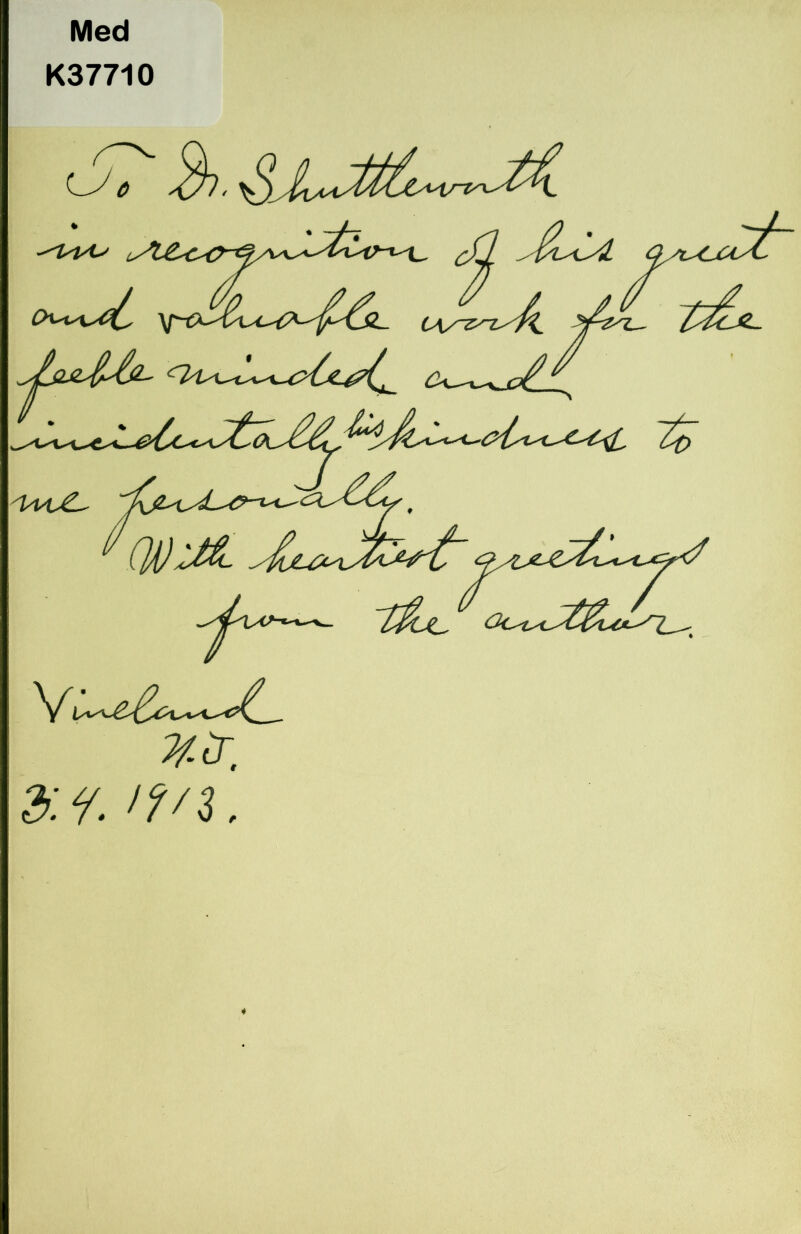 Med
K37710
To Dr. Shuttleworth
in recognition of his great
and valuable work for the
feeble minded and
incidentally his kindness to
me personally.
With heartiest greetings
from the author.
Vineland
N.J.
3.4.1913.